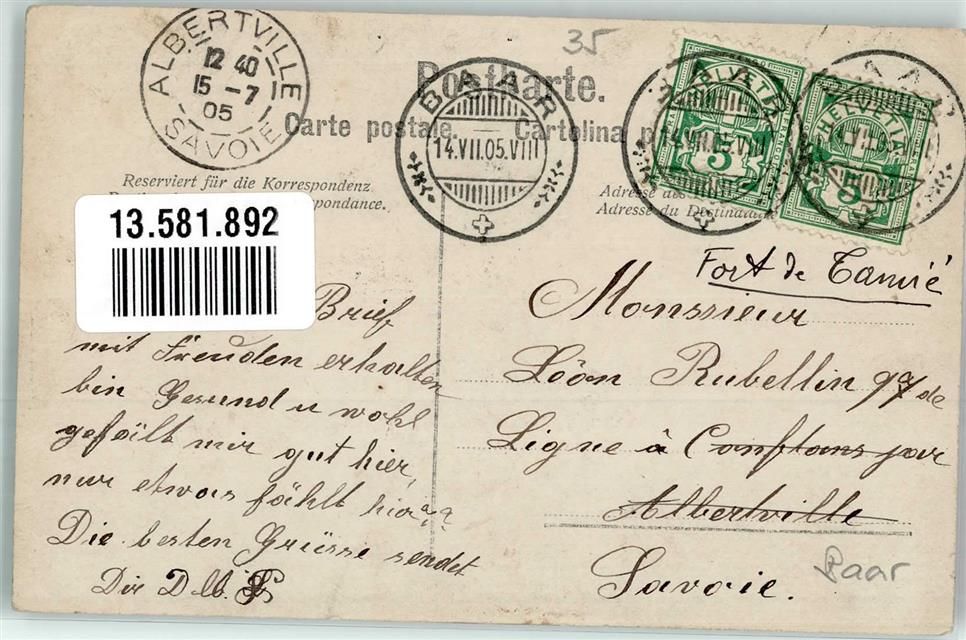 ALBERTVILLE
12 40
15 -7
05
SAVOIE
35
Postkarte.
Carte postale. — Cartolina p
BAAR
14.VII.05.VIII
14.VII.05.VIII
HELVETIA
5
HELVETIA
5
Reserviert für die Korrespondenz
Adresse des
pondance.
Adresse du Destinataire
13.581.892
Fort de Tamié
Brief
mit Freuden erhalten
bin Gesund u wohl
gefält mir gut hier,
nur etwas fählt hier??
Die besten Grüsse sendet
Dir D. lb.
Monsieur
Léon Rubellin 97 de
Ligne à Conflans par
Albertville
Savoie.
Baar